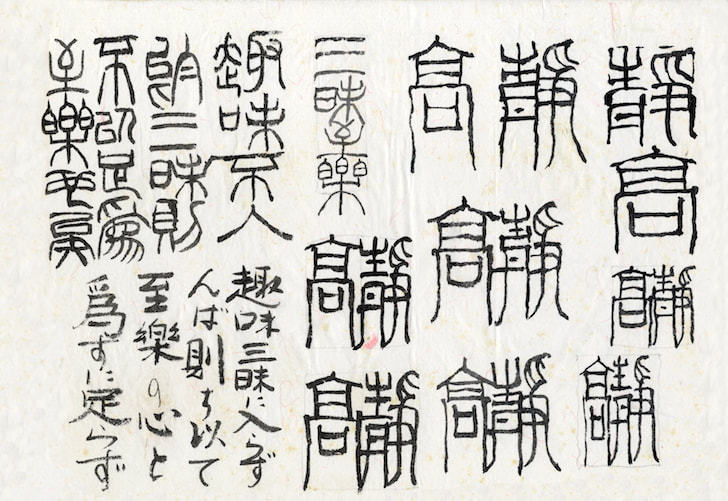 靜
高
靜高
靜高
靜高
靜高
靜高
三昧至樂
靜高
靜高
趣味不入
三昧則
不以足爲
至樂
趣味三昧に入らず
んば則ち以て
至樂の心と
爲すに足らず